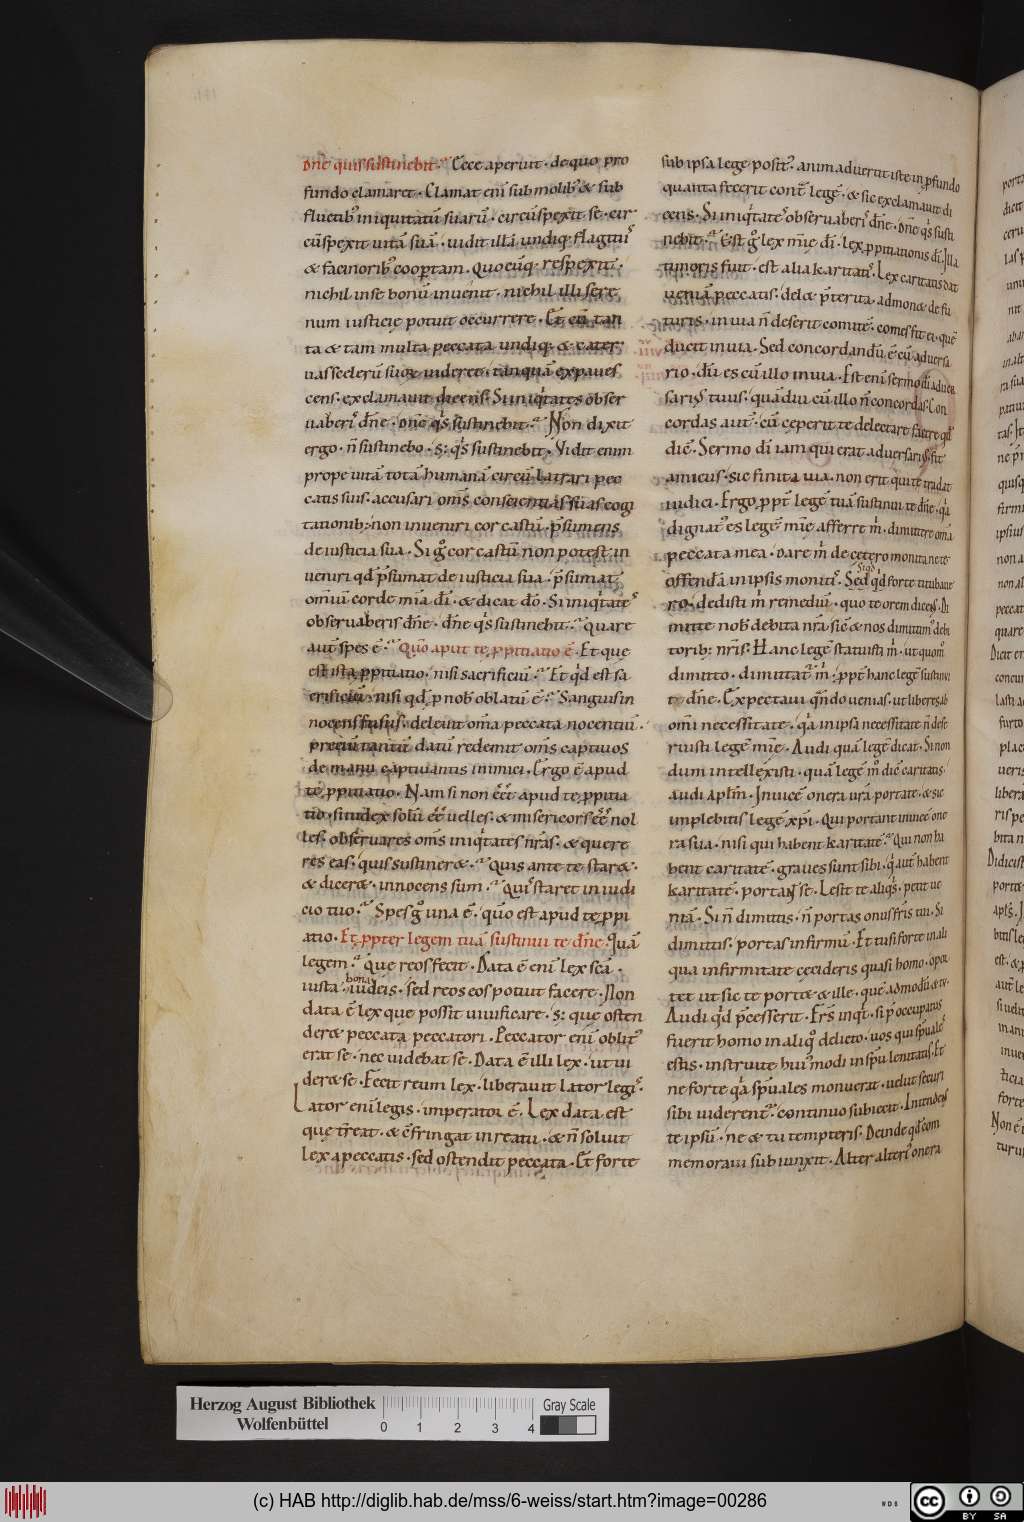 Dn̄e quis sustinebit. Ecce aperuit. de quo pro
fundo clamaret. Clamat eni sub molib; & sub
fluctib; iniquitatū suarū. circūspexit se. cir
cūspexit uitā suā. uidit illā undiq; flagitiis
& facinorib; coopertam. quocūq; respexit.
nichil in se bonū inuenit. nichil illi sere
num iusticię potuit occurrere. Et cū tan
ta & tam multa peccata undiq; & cater
uas scelerū suorū uideret. tanquā expaues
cens. exclamauit dicens. Si iniq̇tates obser
uaberis dn̄e. dn̄e q̇s sustinebit. Non dixit
ergo. n̄ sustinebo. s; q̇s sustinebit. Vidit enim
prope uitā totā humanā circū latrari pec
catis suis. accusari om̄s conscientias suas cogi
tationib; non inueniri cor castū. p̄sumens
de iusticia sua. Si gͦ cor castū non potest in
ueniri qd̄ p̄sumat de iusticia sua. p̄sumat
om̄iū corde mīa dī. & dicat dō. Si iniq̇tates
obseruaberis dn̄e. dn̄e q̇s sustinebit. quare
aut̄ spes ē. Quō aput te ꝓpitiatio ē. Et que
est ista ꝓpitiatio. nisi sacrificiū. Et q̇d est sa
crificiū. nisi qd̄ ꝑ nob̄ oblatū ē. Sanguis in
nocens fusus. deleuit om̄a peccata nocentiū.
preciū tantū datū redemit om̄s captiuos
de manu captiuantis inimici. Ergo ē apud
te ꝓpitiatio. Nam si non eēt apud te ꝓpitia
tio. si iudex solū eē uelles. & misericors eē nol
les. obseruares om̄s iniq̇tates nr̄as. & quere
res eas. quis sustineret. Quis ante te staret.
& diceret. innocens sum. Quis staret in iudi
cio tuo. Spes gͦ una ē. quō est apud te ꝓpi
atio. Et ꝓpter legem tuā sustinui te dn̄e. Quā
legem. Que reos fecit. Data ē eni lex scā.
iusta. bona iudeis. sed reos eos potuit facere. Non
data ē lex que possit uiuificare. s; que osten
deret peccata peccatori. Peccator eni oblitus
erat se. nec uidebat se. Data ē illi lex. ut ui
deret se. Fecit reum lex. liberauit lator legis.
Lator eni legis. imperator ē. Lex data est
que tr̄eat. & c̄fringat in reatu. & n̄ soluit
lex a peccatis. sed ostendit peccata. Et forte
sub ipsa lege positus. animaduertit iste in ꝓfundo
quanta fecerit cont̄ legē. & sic exclamauit di
cens. Si iniq̇tates obseruaberis dn̄e. dn̄e q̇s susti
nebit. Est gͦ lex mīe dī. lex ꝓpitiationis dī. Illa
timoris fuit. est alia karitatis. Lex caritatis dat
ueniā peccatis. delet p̄terita. admonet de fu
turis. in uia n̄ deserit comitē. comes fit ei. quē
ducit in uia. Sed concordandū ē cū aduersa
rio. dū es cū illo in uia. Est eni sermo dī aduer
sarius tuus. quādiu cū illo n̄ concordas. Con
cordas aut̄. cū ceperit te delectare facere qd̄
dic̄. Sermo dī iam qui erat aduersarius. fit
amicus. sic finita uia. non erit qui te tradat
iudici. Ergo ꝓpt̄ legē tuā sustinui te dn̄e. q̇a
dignatus es legē mīe afferre m̄. dimittere om̄a
peccata mea. Dare m̄ de cetero monita ne te
offendā in ipsis monitis. Sed qd̄ forte titubaue
ro. dedisti m̄ remediū. quo te orem dicens. Di
mitte nob̄ debita nr̄a sic̄ & nos dimittimus debi
torib; nr̄is. Hanc legē statuisti m̄. ut quomō
dimitto. dimittatur m̄. ꝓpt̄ hanc legē sustinui
te dn̄e. Expectaui q̄ndo uenias. ut liberes ab
om̄i necessitate. q̇a in ipsa necessitate n̄ dese
ruisti legē mīe. Audi quā legē dicat. Si non
dum intellexisti. quā legē mō dic̄ caritatis.
Audi apl̄m. Inuicē onera ur̄a portate. & sic
implebitis legē xp̄i. Qui portant inuicē one
ra sua. nisi qui habent karitatē. Qui non ha
bent caritatē. graues sunt sibi. q̇ aut̄ habent
karitatē. portant se. Lesit te aliq̇s. petit ue
niā. Si n̄ dimittis. n̄ portas onus fr̄is tui. Si
dimittis. portas infirmū. Et tu si forte in ali
qua infirmitate cecideris quasi homo. opor
tet ut sic te portet & ille. quē admodū & tu.
Audi q̇d p̄cesserit. Frs̄ inq̇t. si p̄occupatus
fuerit homo in aliquo delicto. uos qui spūales
estis. instruite hui; modi in spū lenitatis. Et
ne forte q̇a spūales monuerat. uelut securi
sibi uiderent̄. continuo subiecit. Intendens
te ipsū. ne & tu tempteris. Deinde qd̄ com
memoraui subiunxit. Alter alterius onera
Herzog August Bibliothek
Wolfenbüttel
0 1 2 3 4
Gray Scale
(c) HAB http://diglib.hab.de/mss/6-weiss/start.htm?image=00286
WDB
cc BY SA